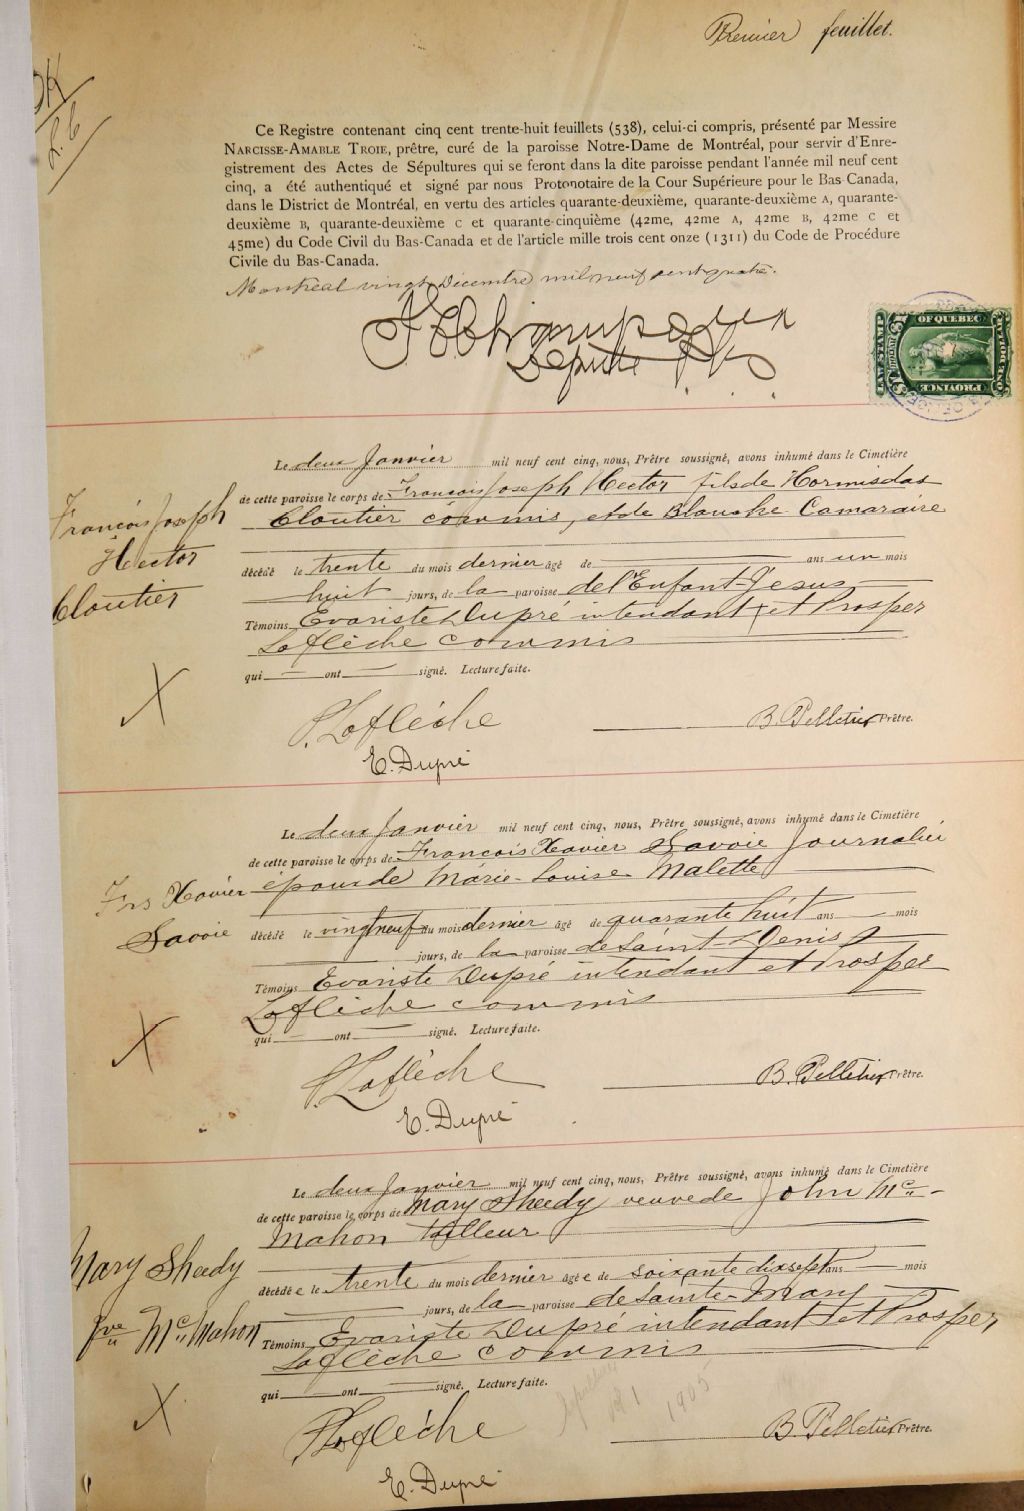 Premier feuillet.
OK
L. C
Ce Registre contenant cinq cent trente-huit feuillets (538), celui-ci compris, présenté par Messire
NARCISSE-AMABLE TROIE, prêtre, curé de la paroisse Notre-Dame de Montréal, pour servir d'Enre-
gistrement des Actes de Sépultures qui se feront dans la dite paroisse pendant l'année mil neuf cent
cinq, a été authentiqué et signé par nous Protonotaire de la Cour Supérieure pour le Bas-Canada,
dans le District de Montréal, en vertu des articles quarante-deuxième, quarante-deuxième A, quarante-
deuxième B, quarante-deuxième C et quarante-cinquième (42me, 42me A, 42me B, 42me C et
45me) du Code Civil du Bas-Canada et de l'article mille trois cent onze (1311) du Code de Procédure
Civile du Bas-Canada.
Montréal vingt Décembre mil neuf cent quatre.
Député
LAW STAMP
OF QUEBEC
PROVINCE
ONE DOLLAR
Le deux Janvier mil neuf cent cinq, nous, Prêtre soussigné, avons inhumé dans le Cimetière
de cette paroisse le corps de François Joseph Hector fils de Hormisdas
Cloutier commis, et de Blanche Camaraire
François Joseph
Hector
Cloutier
décédé le trente du mois dernier âgé de ans un mois
huit jours, de la paroisse de l'Enfant-Jésus
Témoins Evariste Dupré intendant et Prosper
Laflèche commis
qui ont signé. Lecture faite.
X
P. Laflèche
B. Pelletier Prêtre.
E. Dupré
Le deux Janvier mil neuf cent cinq, nous, Prêtre soussigné, avons inhumé dans le Cimetière
de cette paroisse le corps de François Xavier Savoie Journalier
époux de Marie-Louise Malette
Frs Xavier
Savoie
décédé le vingt neuf du mois dernier âgé de quarante huit ans mois
jours, de la paroisse de Saint-Denis
Témoins Evariste Dupré intendant et Prosper
Laflèche commis
qui ont signé. Lecture faite.
X
P. Laflèche
B. Pelletier Prêtre.
E. Dupré
Le deux Janvier mil neuf cent cinq, nous, Prêtre soussigné, avons inhumé dans le Cimetière
de cette paroisse le corps de Mary Sheedy veuve de John Mc
Mahon tailleur
Mary Sheedy
Vve Mc Mahon
décédée le trente du mois dernier âgée de soixante dix sept ans mois
jours, de la paroisse de Sainte-Mary
Témoins Evariste Dupré intendant et Prosper
Laflèche commis
qui ont signé. Lecture faite.
X
1905
P. Laflèche
B. Pelletier Prêtre.
E. Dupré